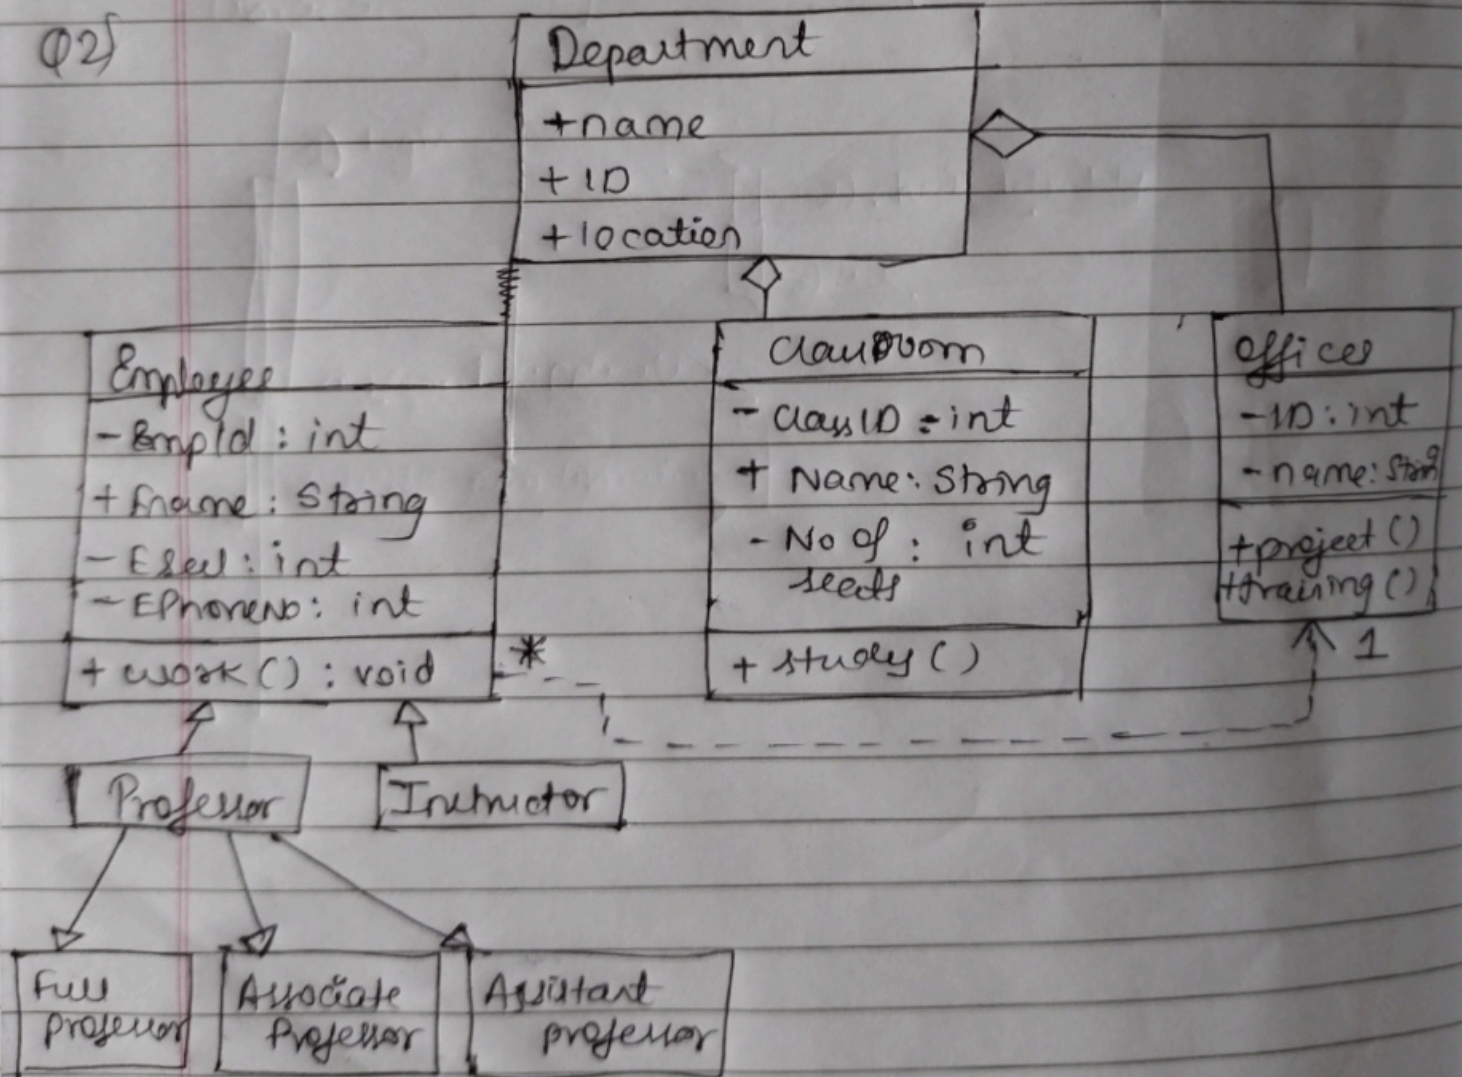 Q2)
Department
+name
+ID
+location
Employee
-EmpId : int
+Ename : String
-ESal : int
-EPhoneNo : int
+work() : void
*
ClassRoom
-ClassID : int
+ Name : String
- No of : int
seats
+ study()
Offices
-ID : int
-name : String
+project()
+training()
1
Professor
Instructor
Full
professor
Associate
Professor
Assistant
professor